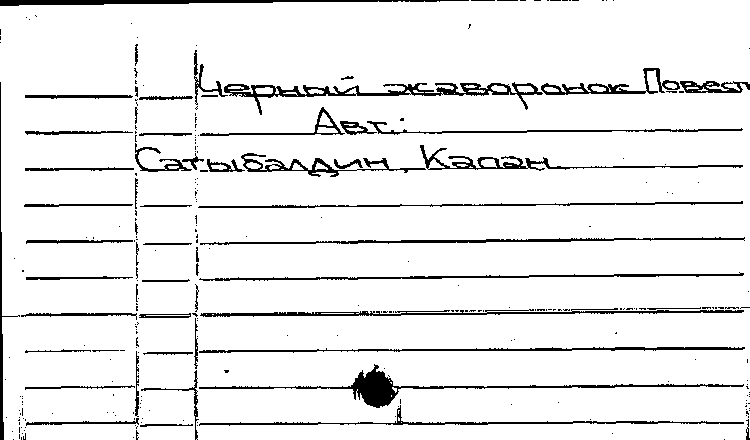 Черный жаворонок Повест
Авт.:
Сатыбалдин, Капан.